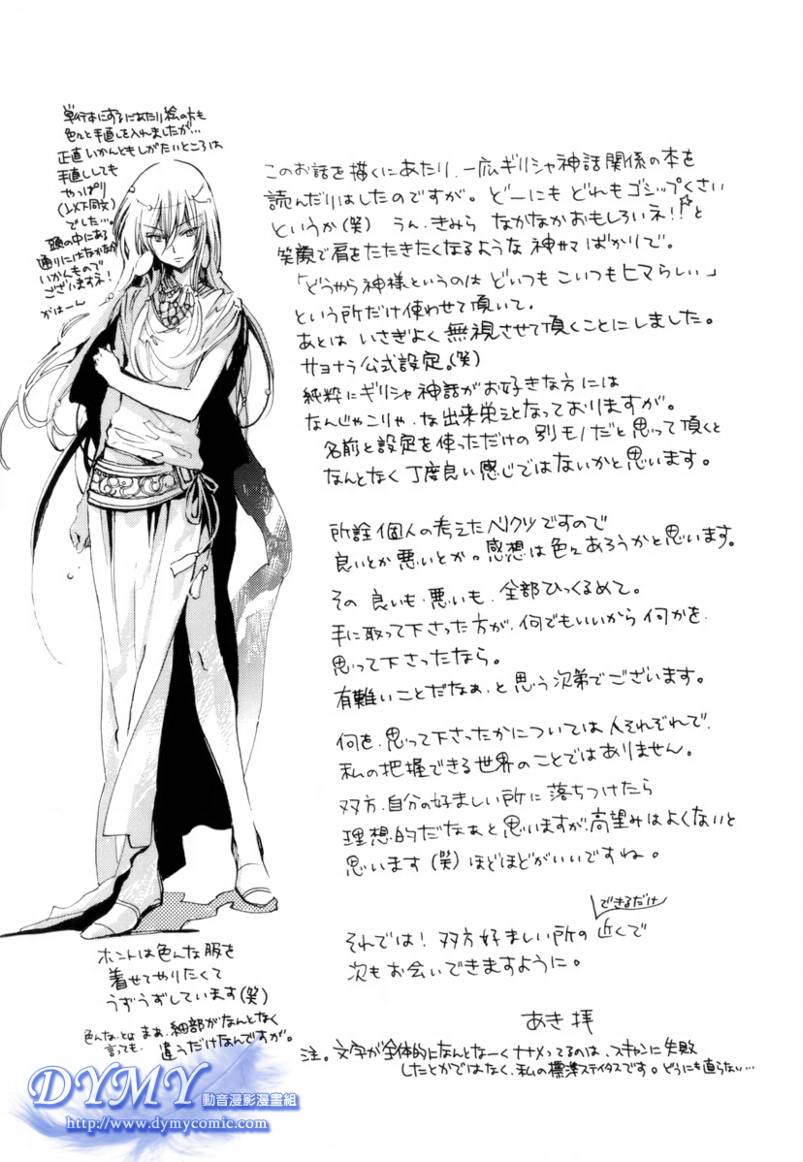 単行本にするにあたり絵の方も
色々と手直しを入れましたが…
正直いかんともしがたいところは
手直ししても
やっぱり
(以下同文)
でした…。
頭の中にある
通りにはなかなか
いかんもので
ございますネ!
がはーん
このお話を描くにあたり、一応ギリシャ神話関係の本を
読んだりはしたのですが。どーにも どれもゴシップくさい
というか(笑) うん、きみら なかなかおもしろいネ!!☆と
笑顔で肩をたたきたくなるような 神サマ ばかりで。
「どうやら神様というのは どいつも こいつも ヒマらしい」
という所だけ使わせて頂いて。
あとは いさぎよく 無視させて頂くことにしました。
サヨナラ公式設定。(笑)
純粋にギリシャ神話がお好きな方には
なんじゃこりゃ、な出来栄えとなっておりますが。
名前と設定を使っただけの別モノだと思って頂くと
なんとなく丁度良い感じではないかと思います。
所詮個人の考えたヘリクツですので
良いとか悪いとか。感想は色々あろうかと思います。
その 良いも、悪いも、全部ひっくるめて。
手に取って下さった方が、何でもいいから 何かを、
思って下さったなら。
有難いことだなぁ、と思う次第でございます。
何を、思って下さったかについては人それぞれで、
私の把握できる世界のことではありません。
双方、自分の好ましい所に落ちつけたら
理想的だなぁと思いますが、高望みはよくないと
思います(笑) ほどほどがいいですね。
できるだけ
それでは! 双方好ましい所の近くで
次もお会いできますように。
あき 拝
注。文字が全体的になんとなーくナナメってるのは、スキャンに失敗
したとかではなく、私の標準ステイタスです。どうにも直らない…
ホントは色んな服を
着せてやりたくて
うずうずしています(笑)
色んな、とは
言っても、
まぁ、細部がなんとなく
違うだけなんですが。
DYMY 動音漫影漫畫組
http://www.dymycomic.com/